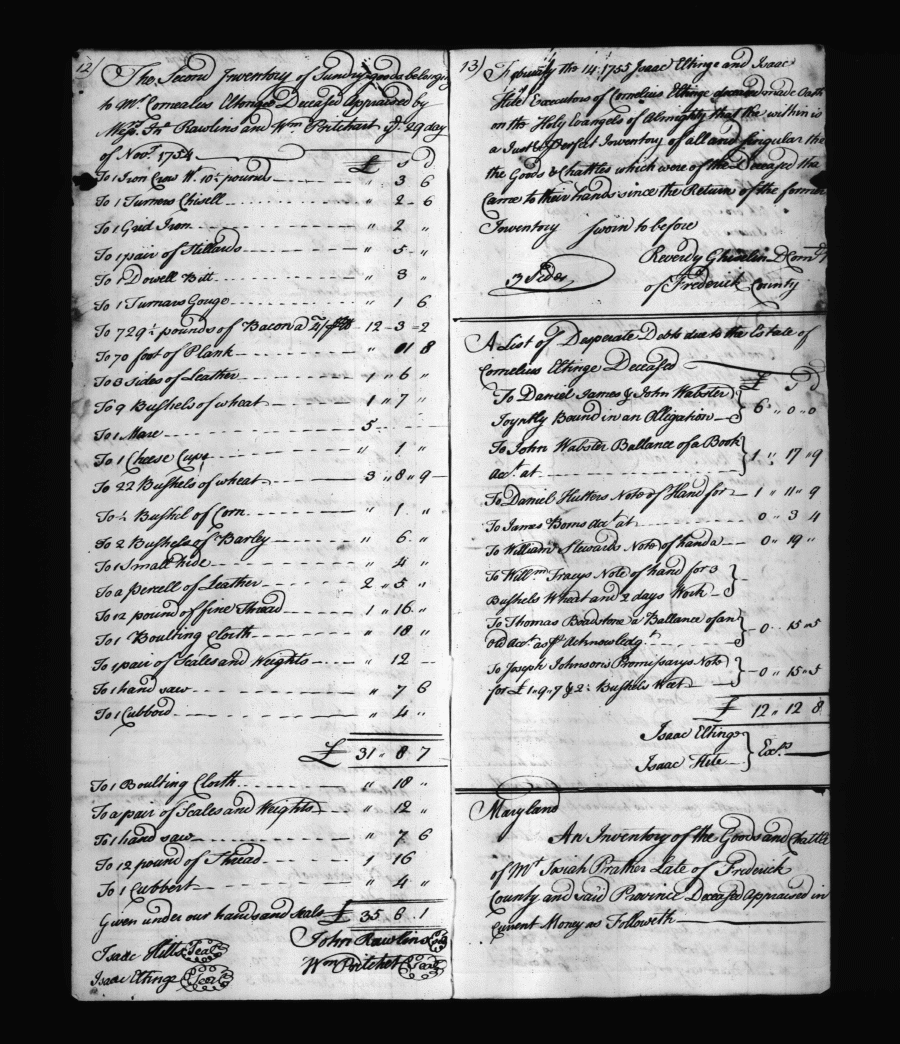 12)
The Second Inventory of Sundry goods belonging
to Mr. Cornealus Eltinge Deceased Appraised by
Messrs. Jno. Rawlins and Wm Pritchart ye 29 day
of Novr. 1754
£ S d
To 1 Iron Crow Wt. 10 1/2 pounds " 3 6
To 1 Turners Chisell " 2 - 6
To 1 Grid Iron " 2 "
To 1 pair of Stillards " 5 "
To 1 Dowell Bitt " 3 "
To 1 Turnars Gouge " 1 6
To 729 1/2 pounds of Bacon a 4/ 12 - 3 - 2
To 70 foot of Plank " 01 8
To 3 Sides of Leather 1 " 6 "
To 9 Bushels of wheat 1 " 7 "
To 1 Mare 5
To 1 Cheese Cupe " 1 "
To 22 Bushels of wheat 3 " 8 " 9
To 1/2 Bushel of Corn " 1 "
To 2 Bushels of Barley " 6 "
To 1 Small hide " 4 "
To a percell of Leather 2 " 5 "
To 12 pound of fine Thread 1 " 16 "
To 1 Boulting Cloth " 18 "
To 1 pair of Scales and Weights " 12 -
To 1 hand saw " 7 6
To 1 Cubbord " 4 "
£ 31 " 8 7
To 1 Boulting Cloth " 18 "
To a pair of Scales and Weights " 12 "
To 1 hand saw " 7 6
To 12 pound of Thread 1 16
To 1 Cubbert " 4 "
Given under our hands and seals £ 35 6 . 1
Isaac Hitts Seal John Rawlins Seal
Isaac Eltinge Seal Wm Pritchet Seal
13)
February the 14: 1755 Isaac Eltinge and Isaac
Hite Executors of Cornelius Eltinge deceased made Oath
on the Holy Evangels of Almighty that the within is
a Just & Perfect Inventory of all and singular the
the Goods & Chattles which were of the Deceased tha
Came to their hands since the Return of the former
Inventory sworn to before
Reverdy Ghiselin D Comry
3 Sides of Frederick County
A List of Desperate Debts due to the Estate of
Cornelius Eltinge Deceased
£ S d
To Daniel James & John Wabster
Joyntly Bound in an Obligation 6 " 0 " 0
To John Wabster Ballance of a Book
acct. at 1 " 17 " 9
To Daniel Hulters Note of Hand for 1 " 11 " 9
To James Borns acct at 0 " 3 4
To William Stewards Note of hand a 0 " 19 "
To Willm Tracys Note of hand for 3
Bushels Wheat and 2 days Work
To Thomas Beadstone a Ballance of an
old acct. as pr Acknowledgt. 0 .. 15 " 5
To Joseph Johnsons Promissarys Note
for £ 1 " 9 " 7 & 2 1/2 Bushels Weat 0 " 15 " 5
£ 12 " 12 8
Isaac Eltinge
Isaac Hite Exrs
Maryland
An Inventory of the Goods and Chattles
of Mr. Josiah Prather Late of Frederick
County and said Province Deceased Appraised in
Current Money as Followeth